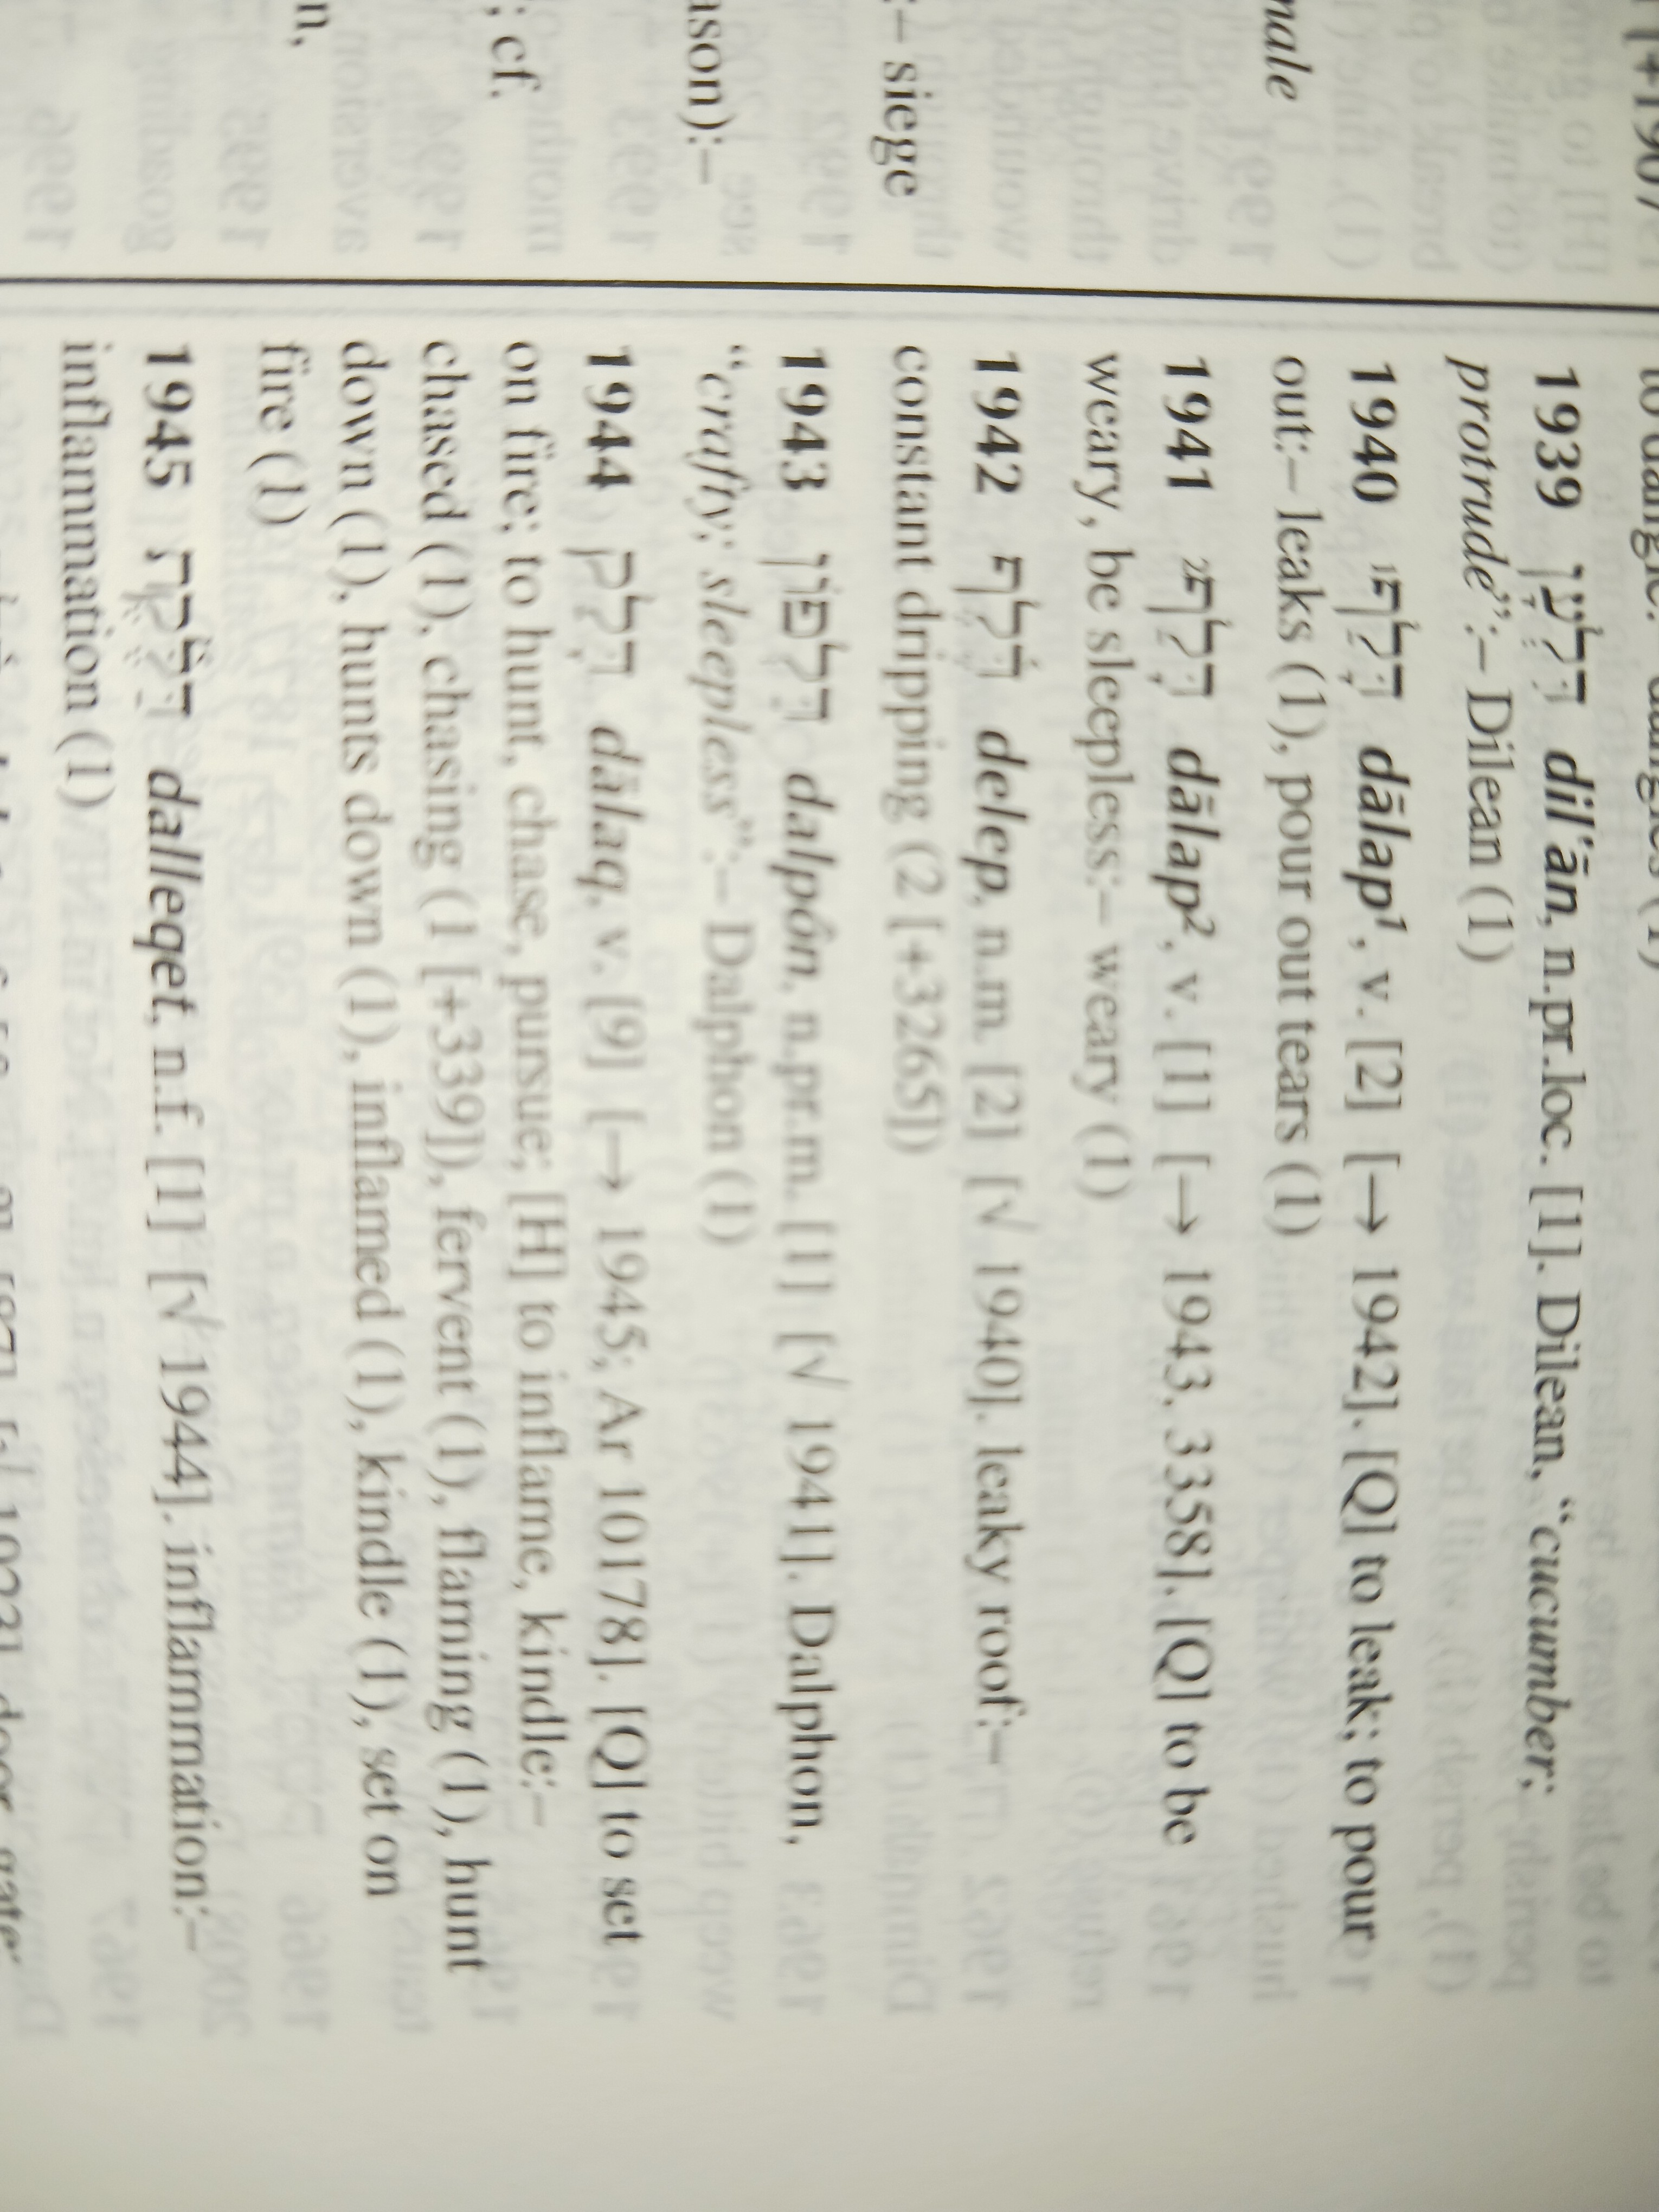 [+1907
male
:– siege
ason):–
; cf.
n,
1939 דִּלְעָן dil'ān, n.pr.loc. [1]. Dilean, “cucumber;
protrude”:– Dilean (1)
1940 דָּלַף¹ dālap¹, v. [2] [→ 1942]. [Q] to leak; to pour
out:– leaks (1), pour out tears (1)
1941 דָּלַף² dālap², v. [1] [→ 1943, 3358]. [Q] to be
weary, be sleepless:– weary (1)
1942 דֶּלֶף delep, n.m. [2] [√ 1940]. leaky roof:–
constant dripping (2 [+3265])
1943 דַּלְפוֹן dalpôn, n.pr.m. [1] [√ 1941]. Dalphon,
“crafty; sleepless”:– Dalphon (1)
1944 דָּלַק dālaq, v. [9] [→ 1945; Ar 10178]. [Q] to set
on fire; to hunt, chase, pursue; [H] to inflame, kindle:–
chased (1), chasing (1 [+339]), fervent (1), flaming (1), hunt
down (1), hunts down (1), inflamed (1), kindle (1), set on
fire (1)
1945 דַּלֶּקֶת dalleqet, n.f. [1] [√ 1944]. inflammation:–
inflammation (1)